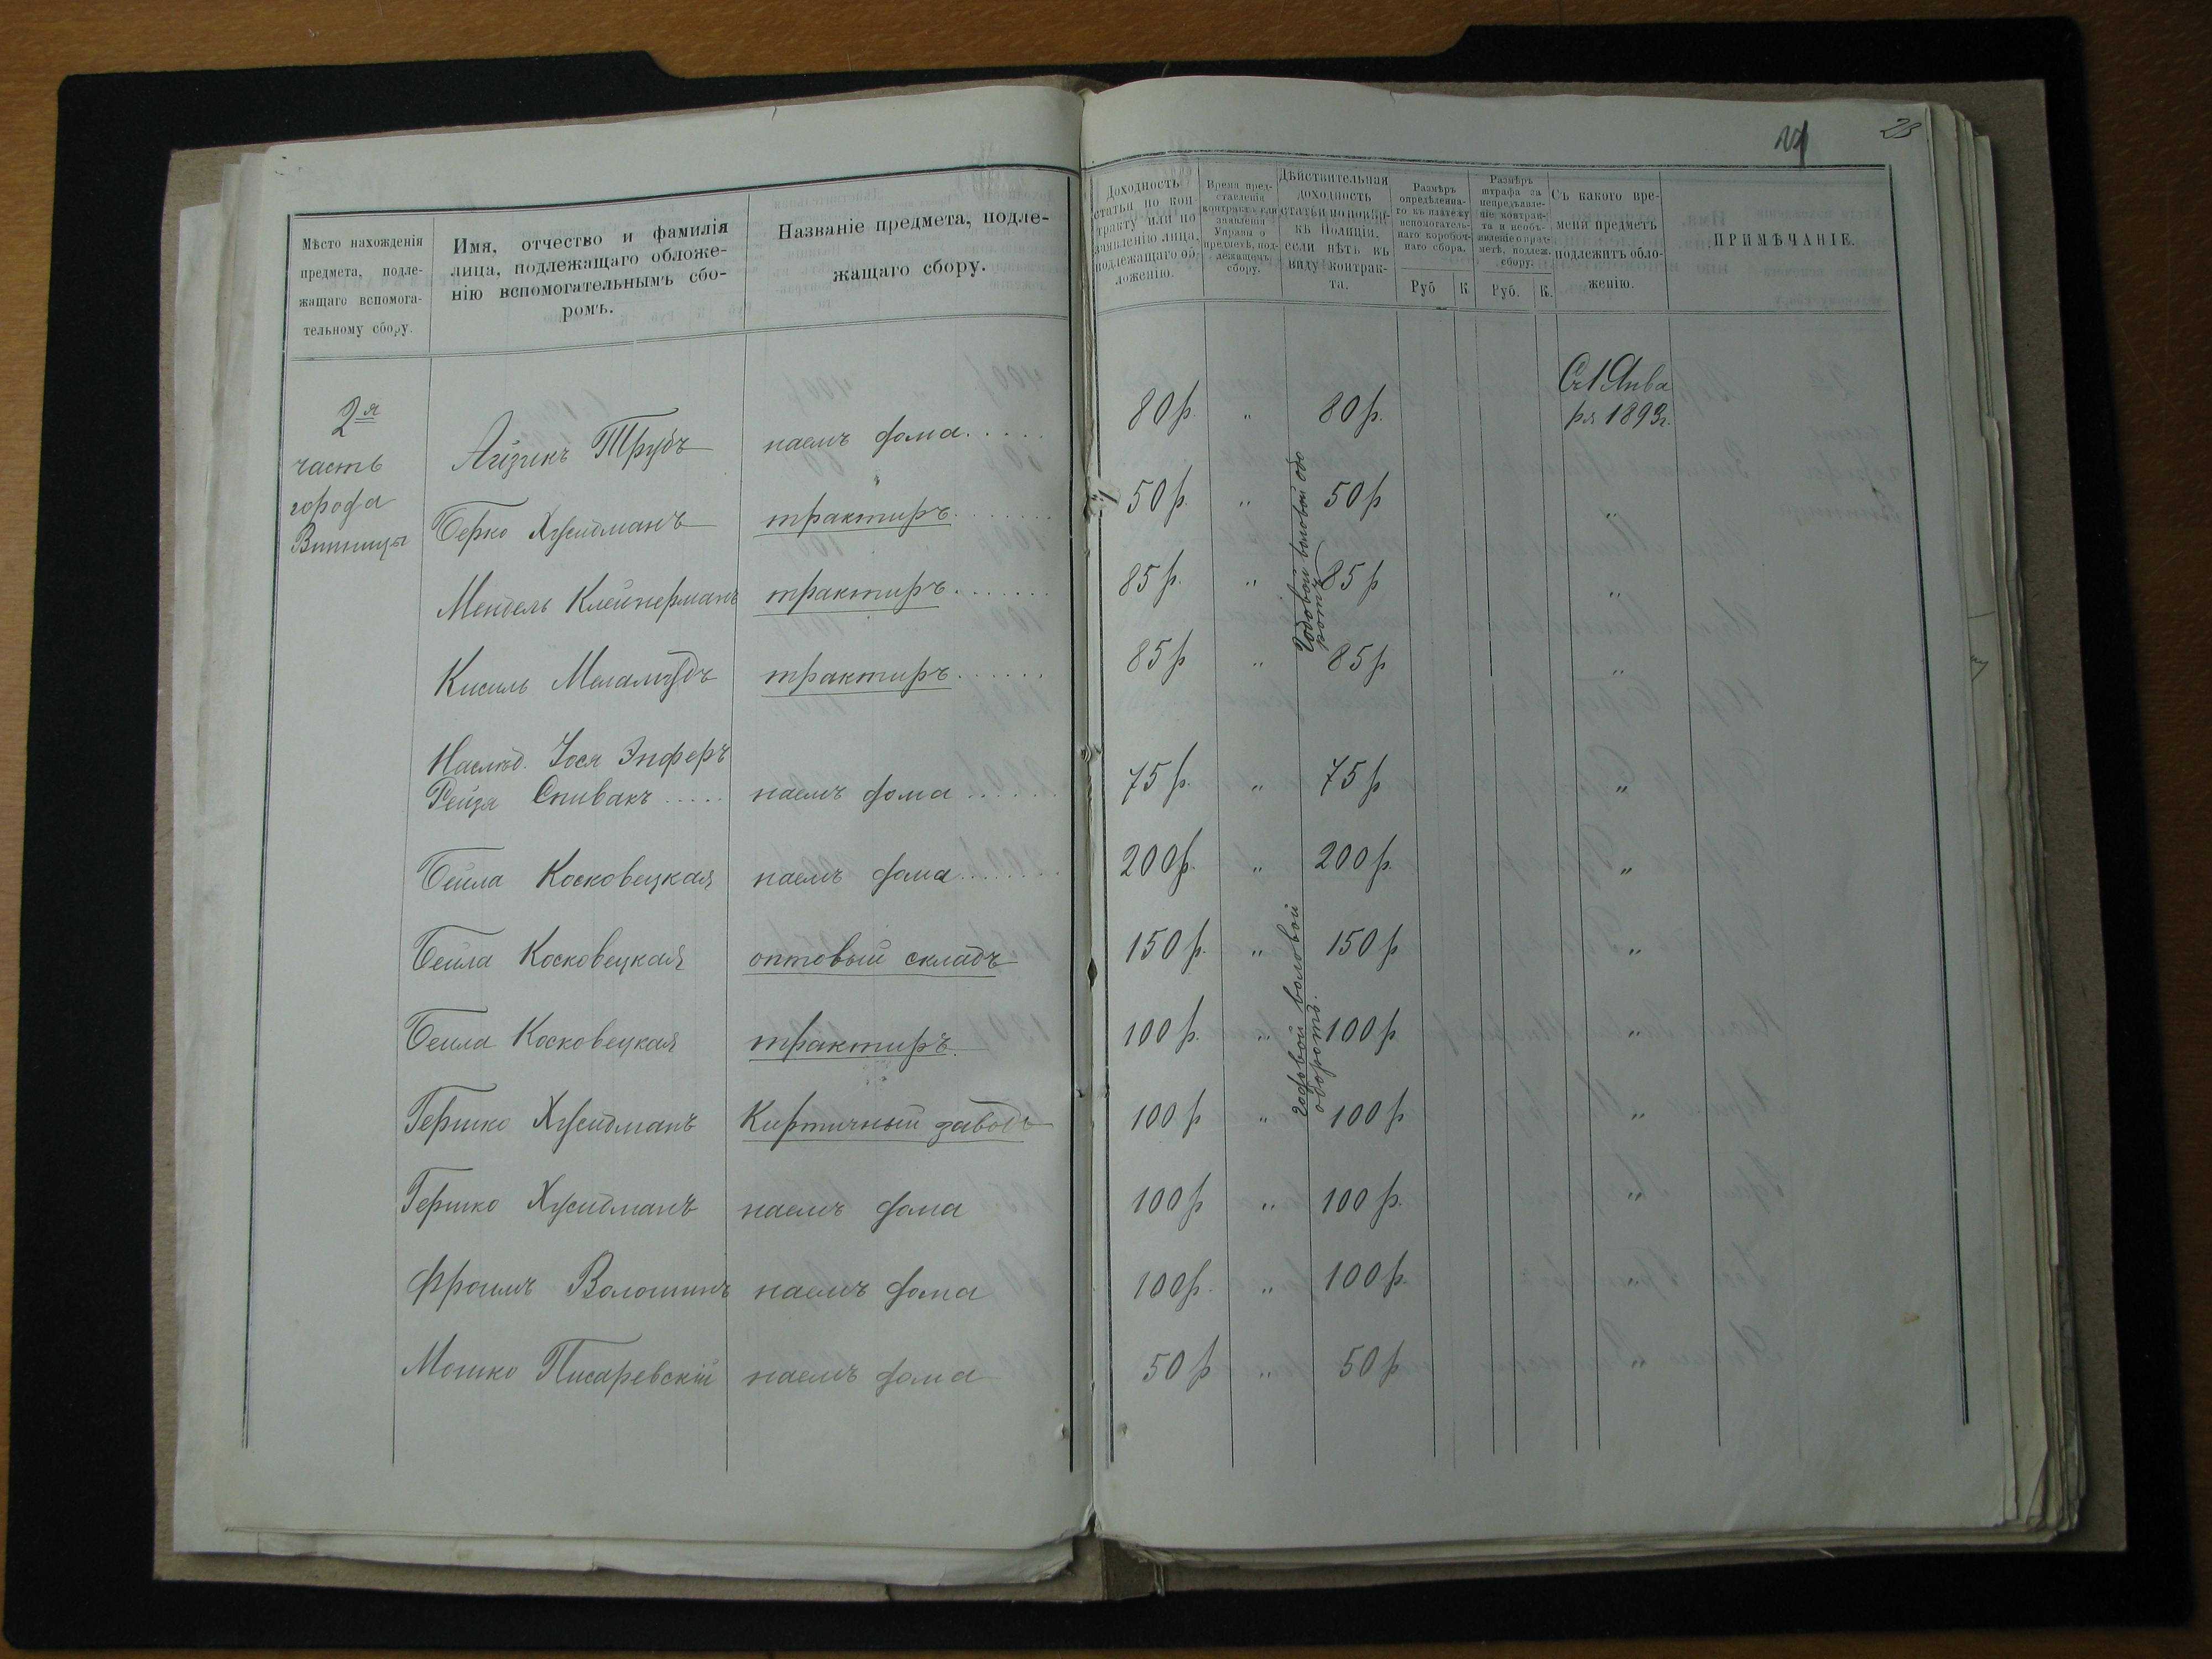 23
Мѣсто нахожденія
предмета, подле-
жащаго вспомога-
тельному сбору.
Имя, отчество и фамилія
лица, подлежащаго обложе-
нію вспомогательнымъ сбо-
ромъ.
Названіе предмета, подле-
жащаго сбору.
Доходность
статьи по кон-
тракту или по
заявленію лица,
подлежащаго об-
ложенію.
Время пред-
ставленія
контракта или
заявленія
Управы о
предметѣ, под-
лежащемъ
сбору.
Дѣйствительная
доходность
статьи по повѣр-
кѣ Полиціи,
если нѣтъ въ
виду контрак-
та.
Размѣръ
опредѣленна-
го къ платежу
вспомогатель-
наго коробоч-
наго сбора.
Руб К
Размѣръ
штрафа за
непредъявле-
ніе контрак-
та и необъ-
явленіе о пред-
метѣ, подлеж.
сбору.
Руб. К.
Съ какого вре-
мени предметъ
подлежитъ обло-
женію.
ПРИМѢЧАНІЕ.
2я
часть
города
Винницы
Айзикъ Трубъ наемъ дома..... 80 р. " 80 р. Съ 1 Янва
ря 1893 г.
Берко Хусидманъ трактиръ....... 50 р. " 50 р "
Мендель Клейнерманъ трактиръ....... 85 р. " 85 р "
Кисиль Меламудъ трактиръ...... 85 р " 85 р "
Годовой валовой обо
ротъ
Наслѣд. Іося Энферъ
Рейзя Спивакъ..... наемъ дома...... 75 р. " 75 р "
Бейла Косковецкая наемъ дома....... 200 р. " 200 р. "
Бейла Косковецкая оптовый складъ 150 р. " 150 р "
Бейла Косковецкая трактиръ. 100 р. " 100 р "
годовой валовой
оборотъ.
Гершко Хусидманъ Кирпичный заводъ 100 р " 100 р "
Гершко Хусидманъ наемъ дома 100 р " 100 р. "
Фроимъ Волошинъ наемъ дома 100 р. " 100 р. "
Мошко Писаревскій наемъ дома 50 р " 50 р "